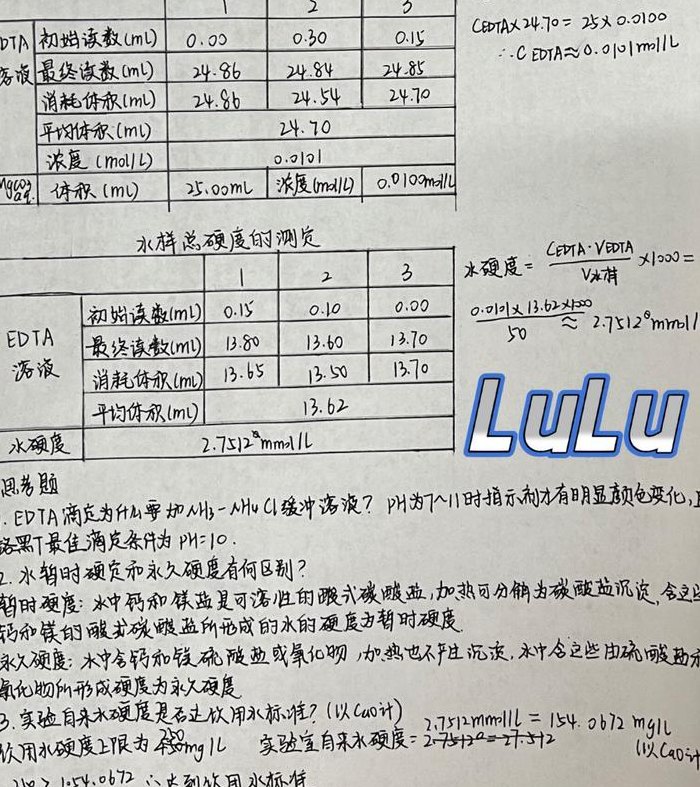 1 2 3
DTA 初始读数(mL) 0.00 0.30 0.15
溶液 最终读数(mL) 24.86 24.84 24.85
消耗体积(mL) 24.86 24.54 24.70
平均体积(mL) 24.70
浓度(mol/L) 0.0101
MgCO3 aq. 体积(mL) 25.00mL 浓度(mol/L) 0.0100mol/L
CEDTA×24.70=25×0.0100
∴CEDTA≈0.0101mol/L
水样总硬度的测定
1 2 3
EDTA 溶液 初始读数(mL) 0.15 0.10 0.00
最终读数(mL) 13.80 13.60 13.70
消耗体积(mL) 13.65 13.50 13.70
平均体积(mL) 13.62
水硬度 2.7512°mmol/L
水硬度=CEDTA·VEDTA/V水样×1000=
0.0101×13.62×1000/50≈2.7512°mmol/
LuLu
思考题
1.EDTA滴定为什么要加NH3-NH4Cl缓冲溶液?PH为7~11时指示剂才有明显颜色变化,
铬黑T最佳滴定条件为PH=10.
2.水暂时硬度和永久硬度有何区别?
暂时硬度:水中钙和镁盐是可溶性的酸式碳酸盐,加热可分解为碳酸盐沉淀,含这些
钙和镁的酸式碳酸盐所形成的水的硬度为暂时硬度.
永久硬度:水中含钙和镁硫酸盐或氧化物,加热也不产生沉淀,水中含这些由硫酸盐
氧化物所形成硬度为永久硬度
3.实验自来水硬度是否达饮用水标准?(以CaO计)
饮用水硬度上限为250mg/L 实验室自来水硬度=2.7512mmol/L=154.0672mg/L
(以CaO计
>154.0672 ∴达到饮用水标准